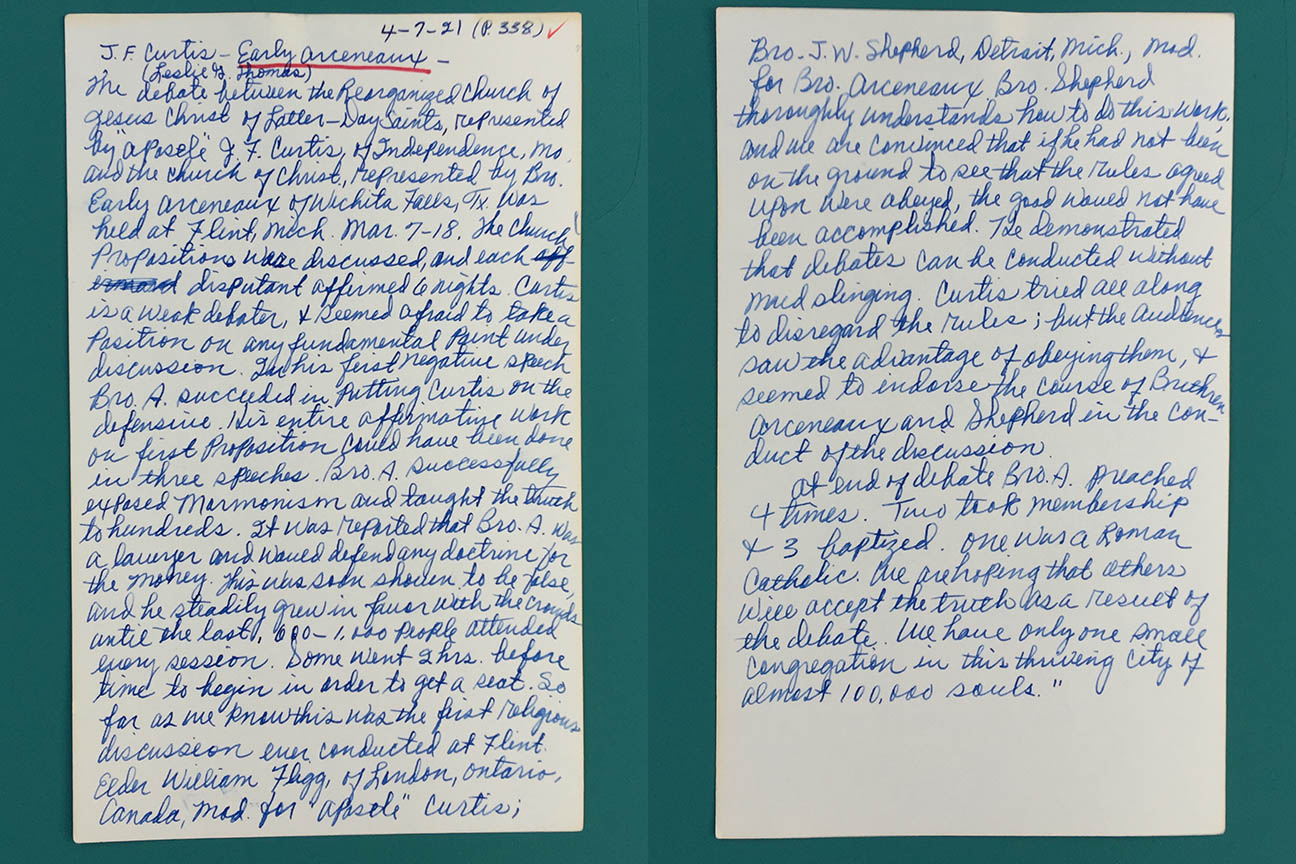 4-7-21 (P. 338) ✓
J. F. Curtis - Early Arceneaux -
(Leslie G. Thomas)
The debate between the Reorganized Church of
Jesus Christ of Latter-Day Saints, represented
by "apostle" J. F. Curtis, of Independence, Mo.
and the church of Christ, represented by Bro.
Early Arceneaux of Wichita Falls, Tx. was
held at Flint, Mich. Mar. 7-18. The Church
Propositions were discussed, and each
disputant affirmed 6 nights. Curtis
is a weak debater, & seemed afraid to take a
Position on any fundamental Point under
discussion. In his first negative speech
Bro. A. succeeded in Putting Curtis on the
defensive. His entire affirmative work
on first Proposition could have been done
in three speeches. Bro. A. successfully
exposed Mormonism and taught the truth
to hundreds. It was reported that Bro. A. was
a lawyer and would defend any doctrine for
the money. This was soon shown to be false,
and he steadily grew in favor with the crowds
until the last. 600-1,000 people attended
every session. Some went 2 hrs. before
time to begin in order to get a seat. So
far as we know this was the first religious
discussion ever conducted at Flint.
Elder William Fligg, of London, Ontario,
Canada, Mod. for "apostle" Curtis;
Bro. J. W. Shepherd, Detroit, Mich., Mod.
for Bro. Arceneaux Bro. Shepherd
thoroughly understands how to do this work,
and we are convinced that if he had not been
on the ground to see that the rules agreed
upon were obeyed, the good would not have
been accomplished. He demonstrated
that debates can be conducted without
mud slinging. Curtis tried all along
to disregard the rules; but the audiences
saw the advantage of obeying them, &
seemed to endorse the course of Brethren
Arceneaux and Shepherd in the con-
duct of the discussion.
At end of debate Bro. A. preached
4 times. Two took membership
& 3 baptized. One was a Roman
Catholic. We are hoping that others
will accept the truth as a result of
the debate. We have only one small
congregation in this thriving city of
almost 100,000 souls."